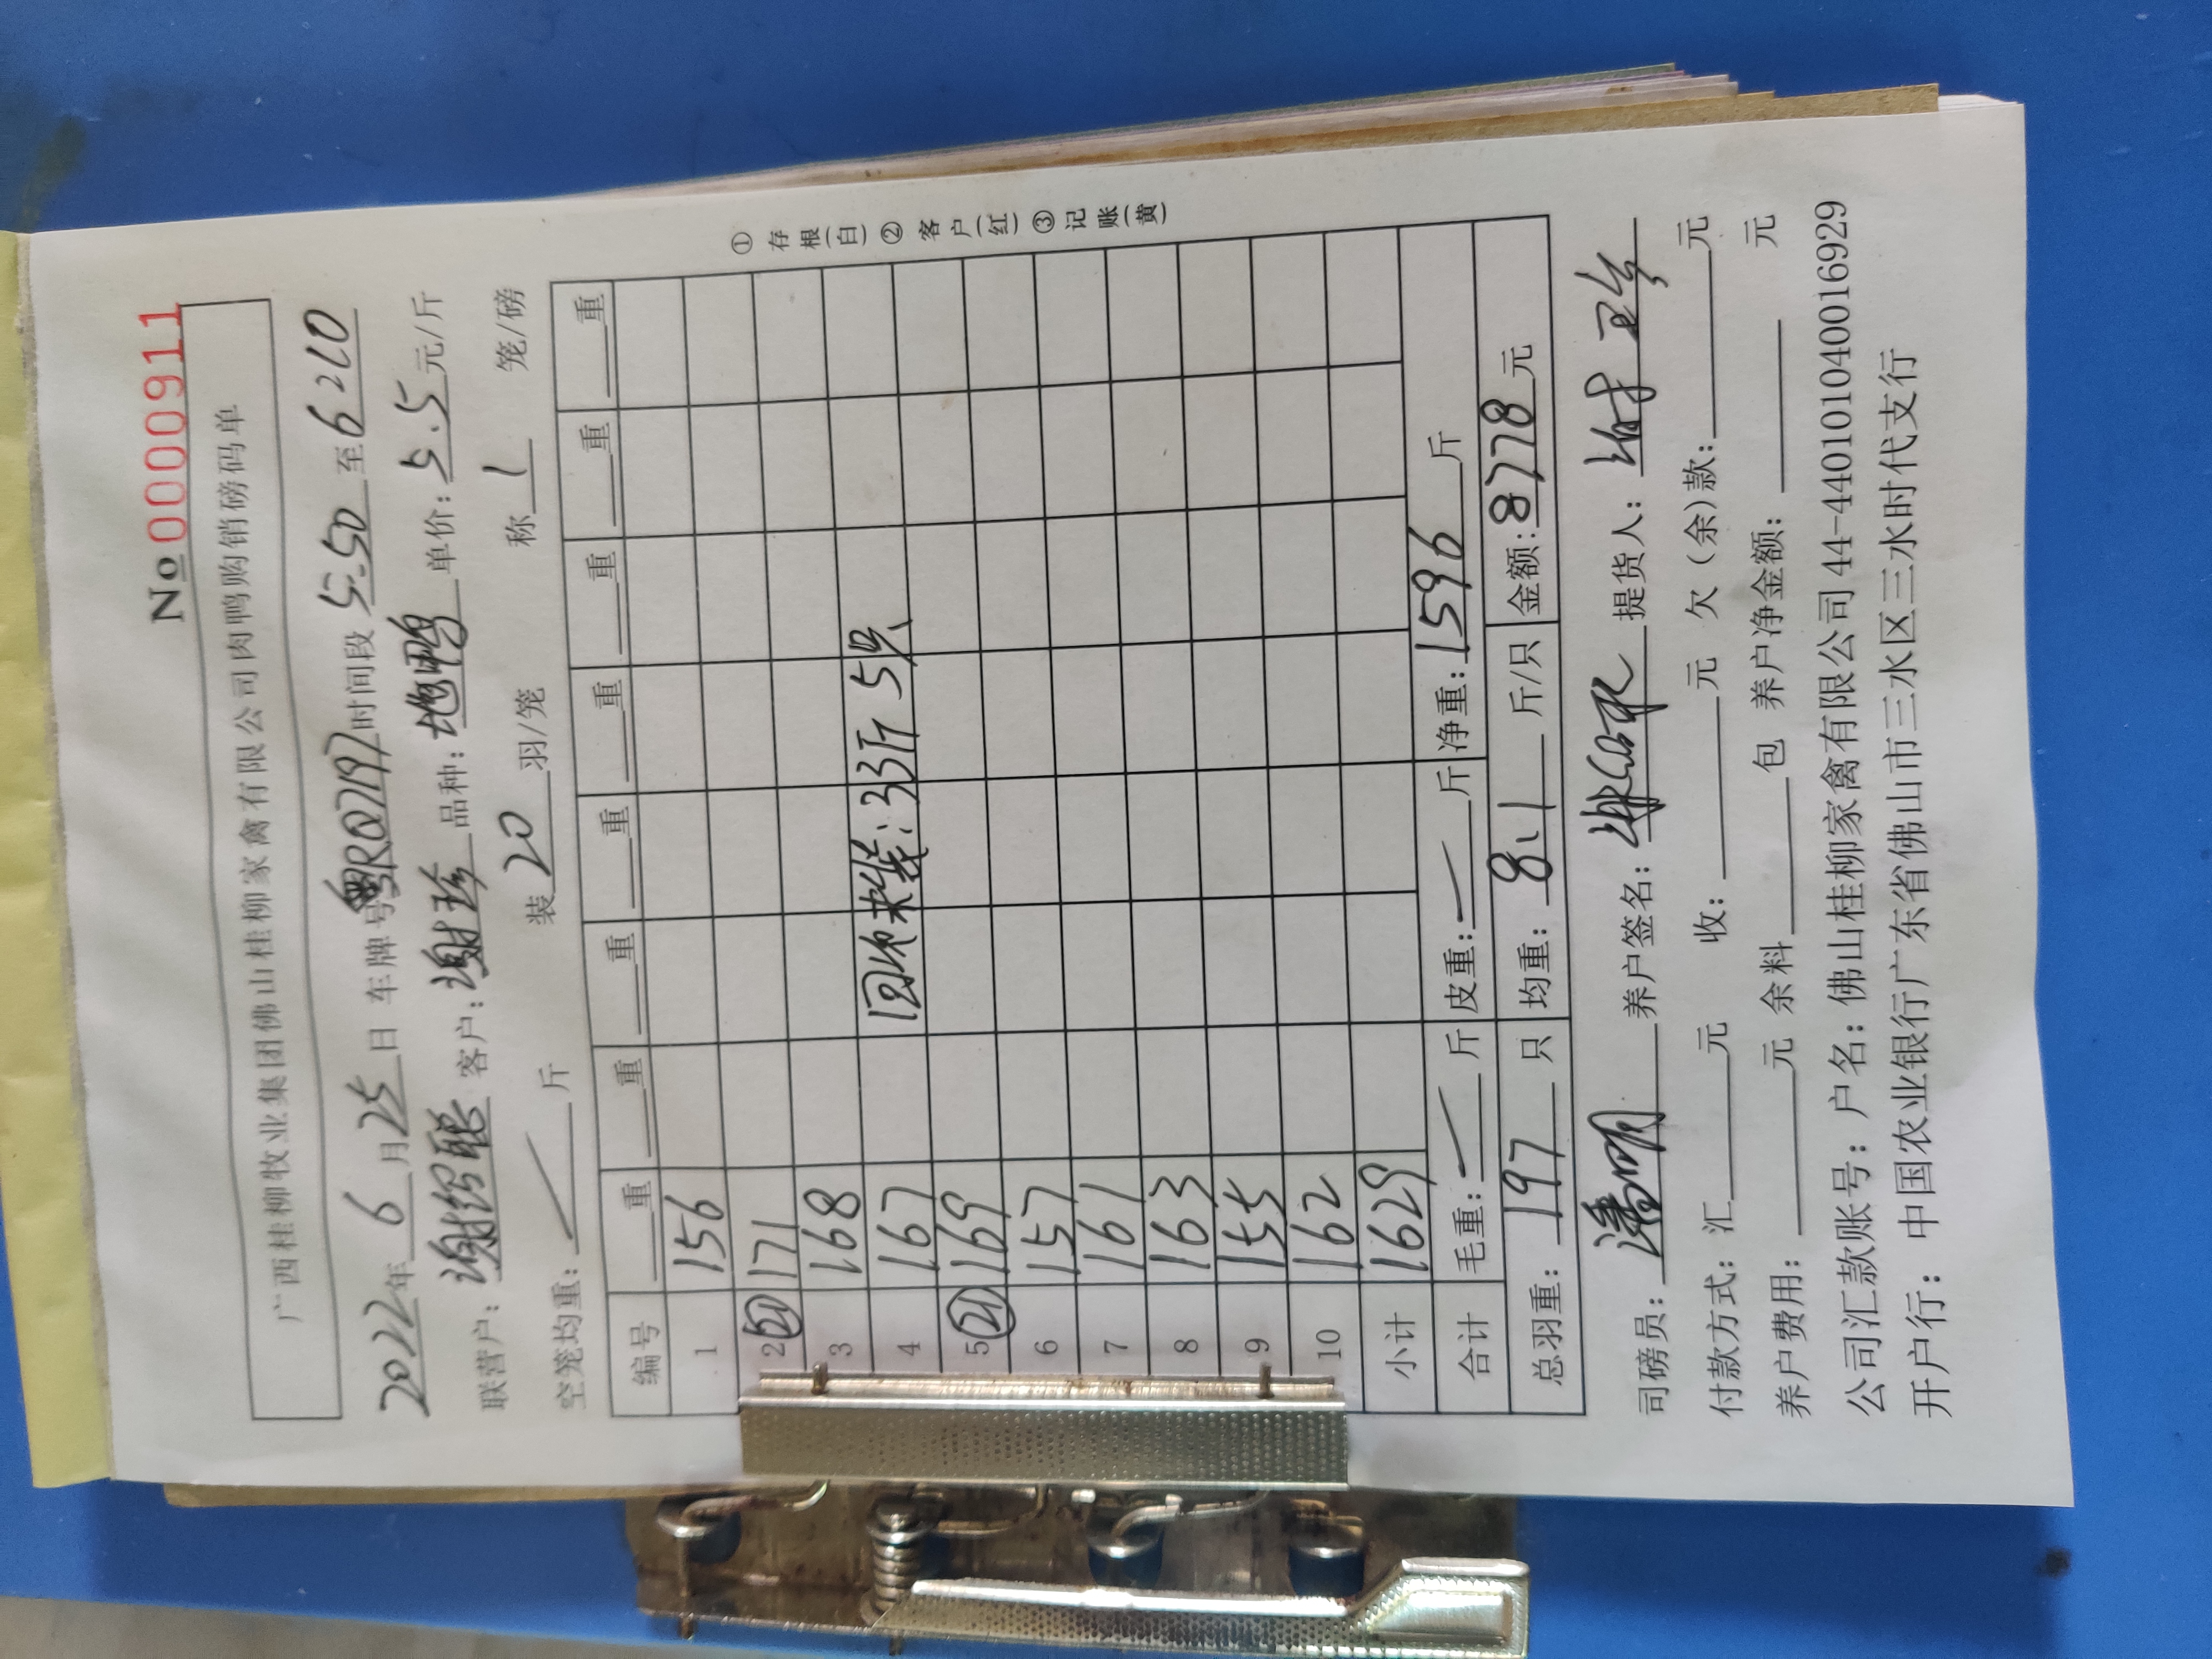 No 0000911
广西桂柳牧业集团佛山桂柳家禽有限公司肉鸭购销磅码单
2022年6月25日 车牌号粤RQ7197时间段5:50至6210
联营户：谢绍聪 客户：谢珍 品种：地鸭 单价：5.5元/斤
空笼均重： 斤 装20羽/笼 称1笼/磅
编号 重 重 重 重 重 重 重 重
1 156
2 (21) 171
3 168
4 167 33斤 5只
5 (21) 169
6 157
7 161
8 163
9 155
10 162
小计 1629
合计 毛重： 斤 皮重： 斤 净重：1596斤
总羽重：197只 均重：8.1斤/只 金额：8778元
①存根(白)②客户(红)③记账(黄)
司磅员：潘明 养户签名： 提货人：
付款方式：汇 元 收： 元 欠(余)款： 元
养户费用： 元 余料 包 养户净金额： 元
公司汇款账号：户名：佛山桂柳家禽有限公司44-440101040016929
开户行：中国农业银行广东省佛山市三水区三水时代支行